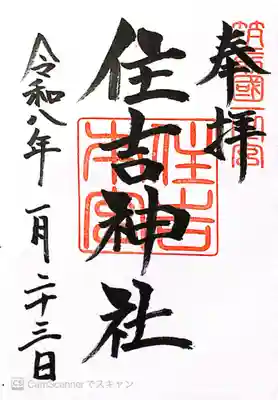 奉拝
住吉神社
住吉
本宮
令和八年 一月二十三日
CS CamScannerでスキャン